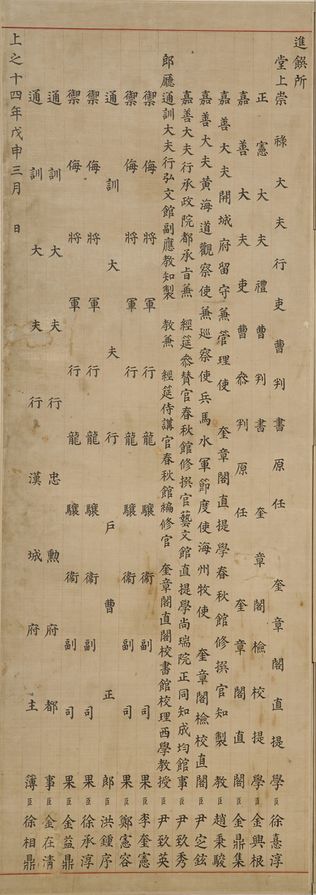 進饌所
堂上崇祿大夫行吏曹判書原任 奎章閣直提學臣徐憙淳
正憲大夫禮曹判書 奎章閣檢校提學臣金興根
嘉善大夫吏曹叅判原任 奎章閣直閣臣金鼎集
嘉善大夫開城府留守兼管理使 奎章閣直提學春秋館修撰官知製 教臣趙秉駿
嘉善大夫黃海道觀察使兼巡察使兵馬水軍節度使海州牧使 奎章閣檢校直閣臣尹定鉉
嘉善大夫行承政院都承旨兼 經筵叅贊官春秋館修撰官藝文館直提學尚瑞院正同知成均館事臣尹致秀
郎廳通訓大夫行弘文館副應教知製 教兼 經筵侍講官春秋館編修官 奎章閣直閣校書館校理西學教授臣尹致英
禦侮將軍行龍驤衛副司果臣李奎憲
禦侮將軍行龍驤衛副司果臣鄭憲容
通訓大夫行戶曹正郎臣洪鍾序
禦侮將軍行龍驤衛副司果臣徐承淳
禦侮將軍行龍驤衛副司果臣金益鼎
通訓大夫行忠勳府都事臣金在清
通訓大夫行漢城府主簿臣徐相鼎
上之十四年戊申三月 日